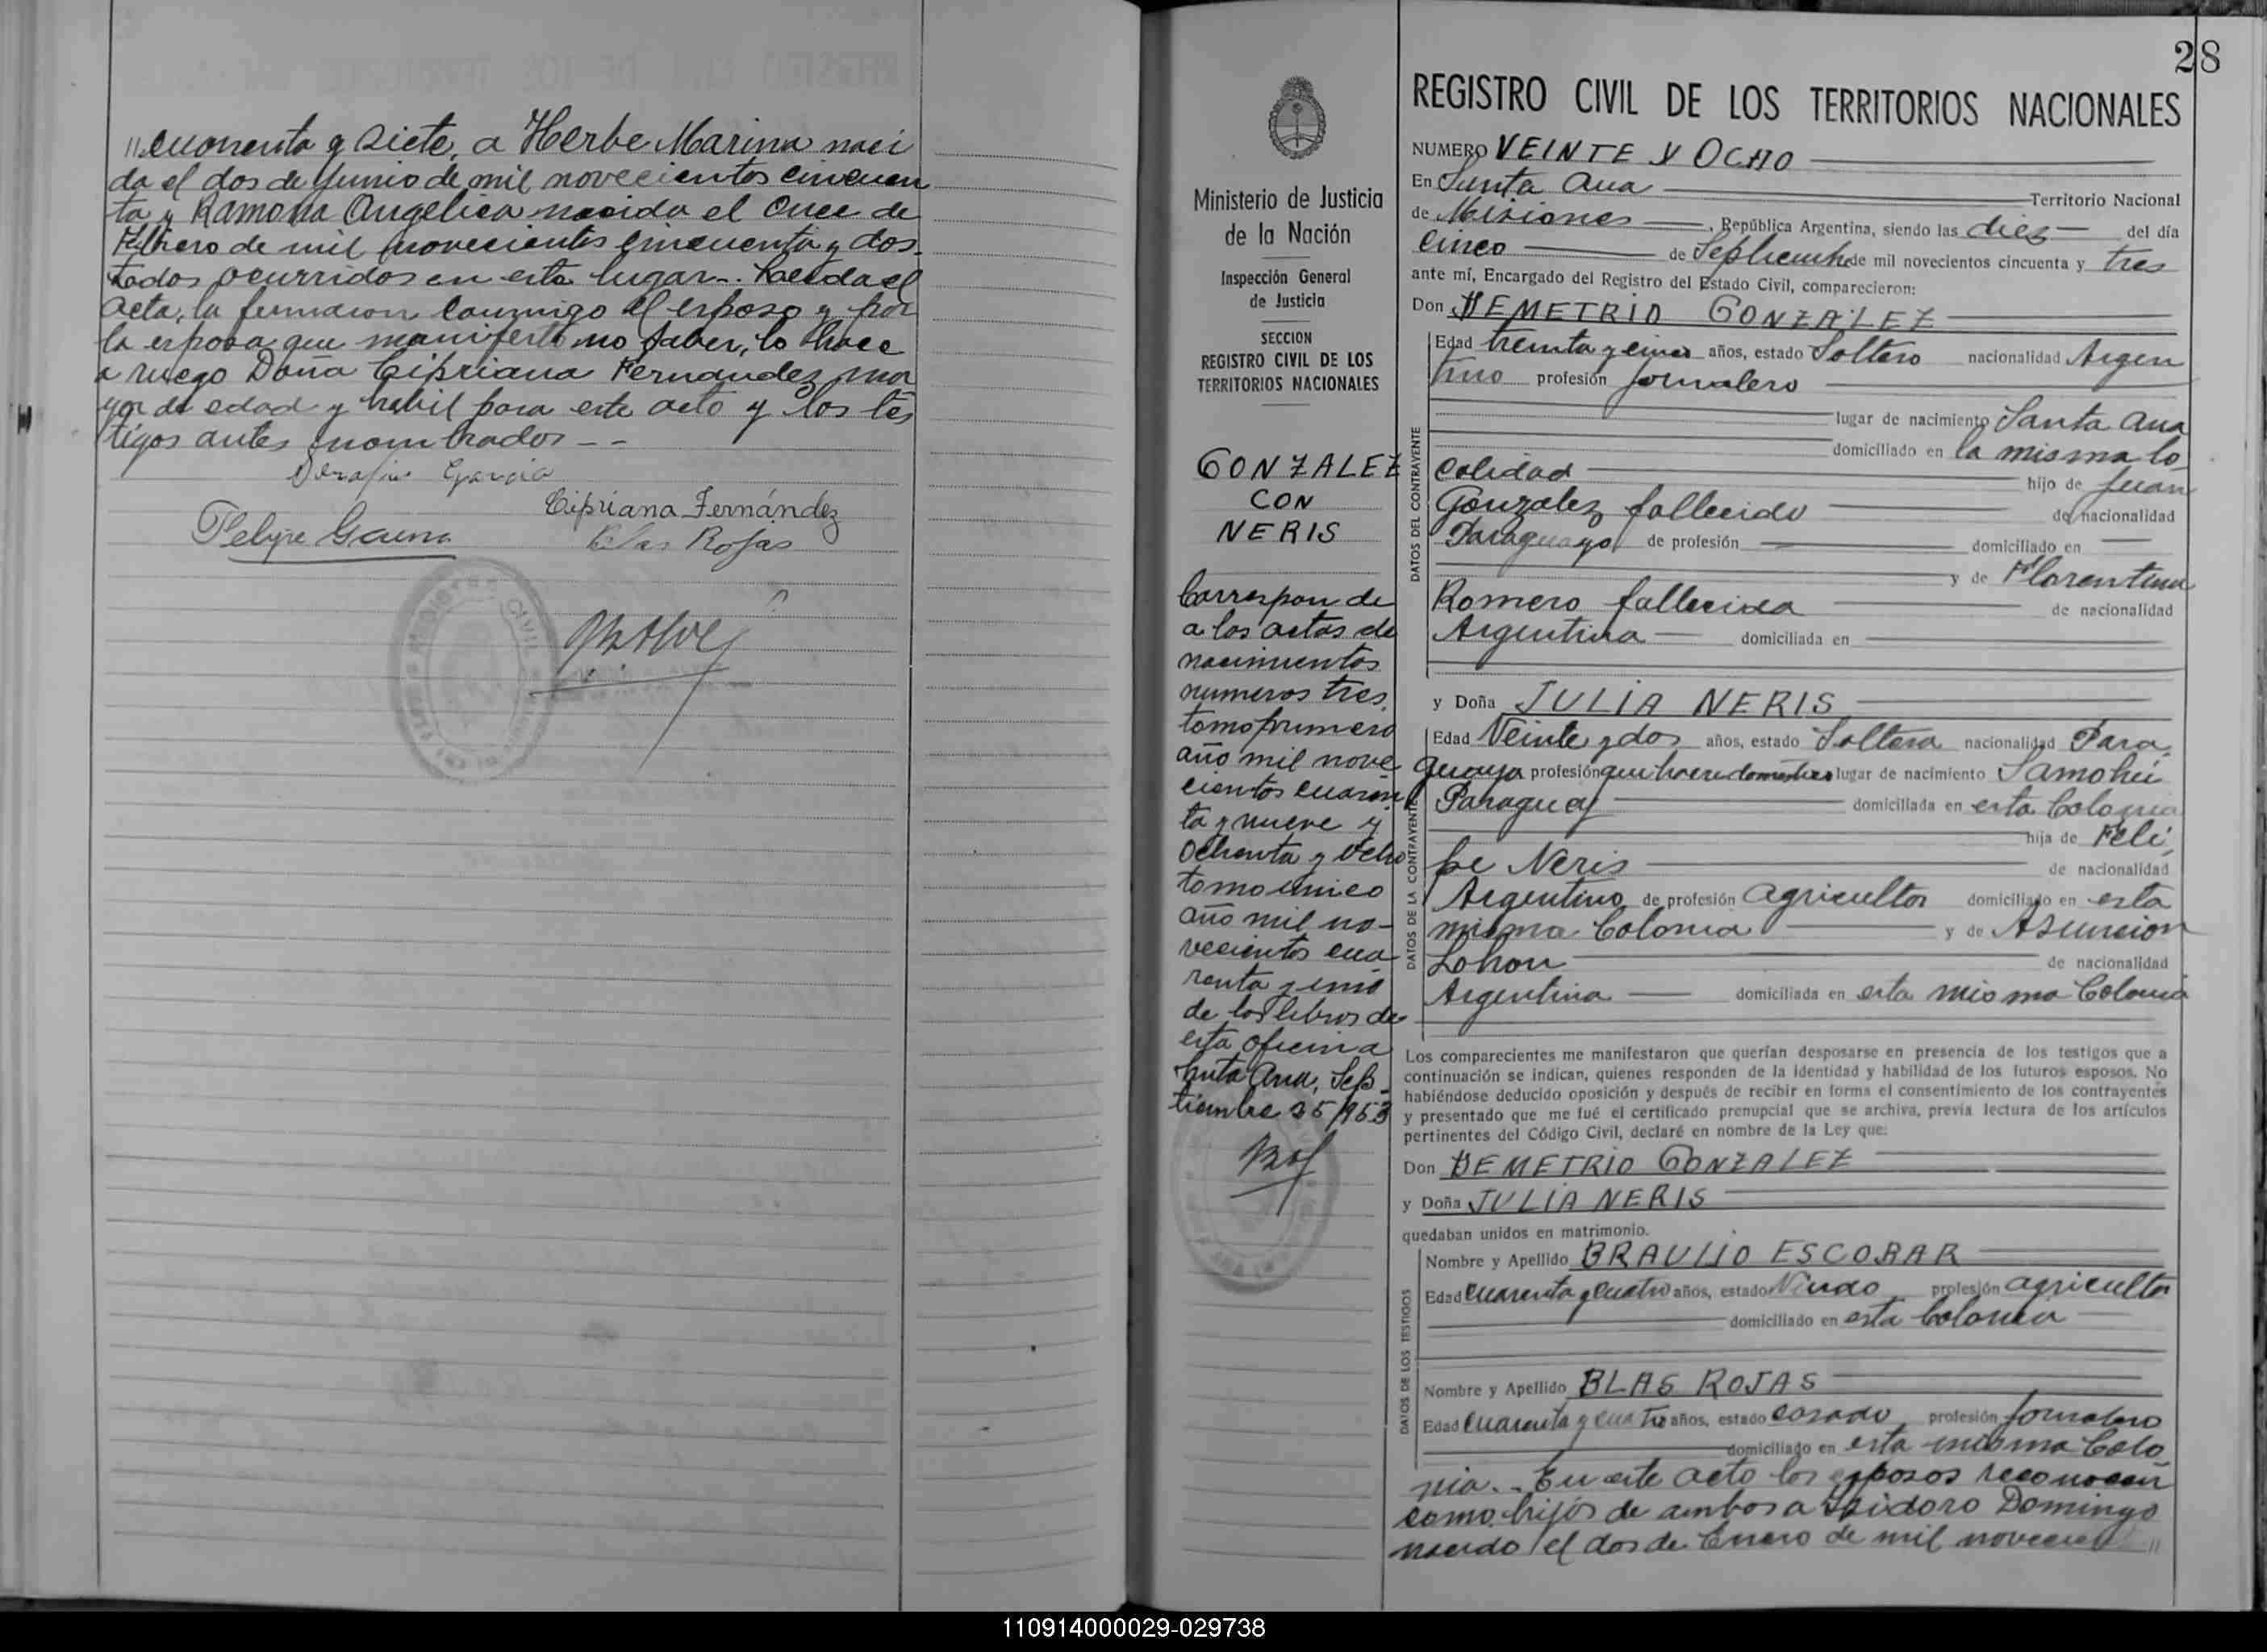 " cuarenta y siete, a Herbe Marina naci
da el dos de Junio de mil novecientos cincuen
ta y Ramona Angelica nacida el once de
Febrero de mil novecientos cincuenta y dos.
todos ocurridos en este lugar-. Leida el
acta, la firmaron conmigo el esposo y por
la esposa que manifestó no saber, lo hace
a ruego Doña Cipriana Fernandez, ma
yor de edad y habil para este acto y los tes
tigos antes nombrados - -
Serafin Garcia
Cipriana Fernández
Felipe Gauna
Blas Rojas
28
Ministerio de Justicia
de la Nación
Inspección General
de Justicia
SECCION
REGISTRO CIVIL DE LOS
TERRITORIOS NACIONALES
GONZALEZ
CON
NERIS
Correspon de
a las actas de
nacimientos
numeros tres,
tomo primero
año mil nove
cientos cuaren
ta y nueve y
ochenta y ocho
tomo unico
año mil no-
vecientos cua
renta y uno
de los libros de
esta oficina
Santa Ana, Sep-
tiembre 25/953
REGISTRO CIVIL DE LOS TERRITORIOS NACIONALES
NUMERO VEINTE Y OCHO
En Santa Ana Territorio Nacional
de Misiones, República Argentina, siendo las diez del día
cinco de Septiembre de mil novecientos cincuenta y tres
ante mí, Encargado del Registro del Estado Civil, comparecieron:
Don DEMETRIO GONZALEZ
DATOS DEL CONTRAYENTE
Edad treinta y cinco años, estado Soltero nacionalidad Argen
tino profesión jornalero
lugar de nacimiento Santa Ana
domiciliado en la misma lo
calidad
hijo de Juan
Gonzalez fallecido de nacionalidad
Paraguayo de profesión domiciliado en
y de Florentina
Romero fallecida de nacionalidad
Argentina domiciliada en
y Doña JULIA NERIS
DATOS DE LA CONTRAYENTE
Edad Veinte y dos años, estado Soltera nacionalidad Para
guaya profesión que hacere domesticos lugar de nacimiento
Paraguay domiciliada en esta Colonia
hija de Feli
pe Neris de nacionalidad
Argentino de profesión agricultor domiciliado en esta
misma Colonia y de Asuncion
de nacionalidad
Argentina domiciliada en esta misma Colonia
Los comparecientes me manifestaron que querían desposarse en presencia de los testigos que a
continuación se indican, quienes responden de la identidad y habilidad de los futuros esposos. No
habiéndose deducido oposición y después de recibir en forma el consentimiento de los contrayentes
y presentado que me fué el certificado prenupcial que se archiva, previa lectura de los artículos
pertinentes del Código Civil, declaré en nombre de la Ley que:
Don DEMETRIO GONZALEZ
y Doña JULIA NERIS
quedaban unidos en matrimonio.
DATOS DE LOS TESTIGOS
Nombre y Apellido BRAULIO ESCOBAR
Edad cuarenta y cuatro años, estado Viudo profesión agricultor
domiciliado en esta Colonia
Nombre y Apellido BLAS ROJAS
Edad cuarenta y cuatro años, estado casado profesión jornalero
domiciliado en esta misma Colo
nia.- En este acto los esposos reconocen
como hijos de ambos a Isidoro Domingo
nacido el dos de Enero de mil novecien "
110914000029-029738